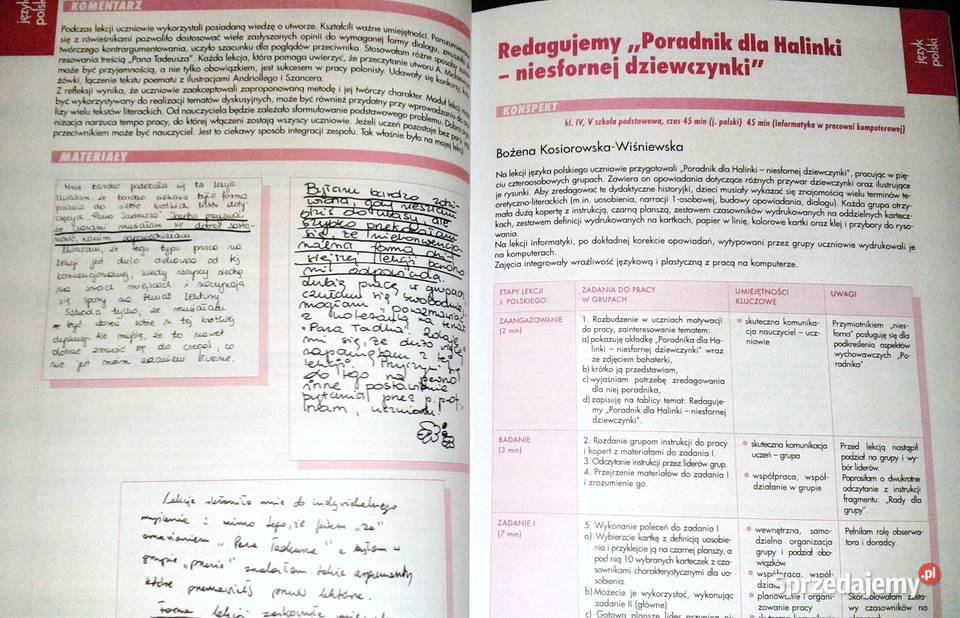 język
polski
KOMENTARZ
Podczas lekcji uczniowie wykorzystali posiadaną wiedzę o utworze. Kształcili ważne umiejętności. Porozumiewanie
się z rówieśnikami pozwoliło dostosować wiele zasłyszanych opinii do wymaganej formy dialogu, zmuszało
twórczego kontrargumentowania, uczyło szacunku dla poglądów przeciwnika. Stosowałam różne sposoby
resowania treścią „Pana Tadeusza”. Każda lekcja, która pomaga uwierzyć, że przeczytanie utworu A. Mickiewicza
może być przyjemnością, a nie tylko obowiązkiem, jest sukcesem w pracy polonisty. Udawały się konkursy,
żówki, łączenie tekstu poematu z ilustracjami Andriollego i Szancera.
Z refleksji wynika, że uczniowie zaakceptowali zaproponowaną metodę i jej twórczy charakter. Moduł lekcji może
być wykorzystywany do realizacji tematów dyskusyjnych, może być również przydatny przy wprowadzaniu do
lizy wielu tekstów literackich. Od nauczyciela będzie zależało sformułowanie podstawowego problemu. Dobra
nizacja narzuca tempo pracy, do której włączeni zostają wszyscy uczniowie. Jeżeli uczeń pozostaje bez pary,
przeciwnikiem może być nauczyciel. Jest to ciekawy sposób integracji zespołu. Tak właśnie było na mojej lekcji.
MATERIAŁY
Mnie bardzo podobała się ta lekcja.
Uważam, że bardzo ciekawa była forma
pisania do siebie krótkich listów doty-
czących „Pana Tadeusza”.
Uważam, że tego typu praca na
lekcji jest dużo ciekawsza od tej
konwencjonalnej, kiedy wszyscy siedzą
na swoich miejscach i
się spory na temat lektury.
Szkoda tylko, że musiałam
Byłam bardzo zdzi-
wiona, gdy weszłam
dziś do klasy, ale
szybko przekonałam
się, że niekonwencjo-
nalna forma dzi-
siejszej lekcji bardzo
mi odpowiada.
Lubię pracę w grupach,
czułam się swobodnie,
mogłam porozmawiać
z koleżanką na temat
"Pana Tadka". Zdaje
mi się, że dużo więcej
zapamiętam z tej
lekcji.
do tego na pewno
inne postawienie
pytania przez p. prof.
nam, uczniom!
Lekcja skłoniła mnie do indywidualnego
myślenia i mimo tego, że jestem „za”
omawianiem „Pana Tadeusza” a byłam w
grupie „przeciw” znalazłam takie argumenty
które
Forma lekcji
Redagujemy „Poradnik dla Halinki
– niesfornej dziewczynki”
język
polski
KONSPEKT
kl. IV, V szkoła podstawowa, czas 45 min (j. polski) 45 min (informatyka w pracowni komputerowej)
Bożena Kosiorowska-Wiśniewska
Na lekcji języka polskiego uczniowie przygotowali „Poradnik dla Halinki – niesfornej dziewczynki”, pracując w pię-
ciu czteroosobowych grupach. Zawiera on opowiadania dotyczące różnych przywar dziewczynki oraz ilustrujące
je rysunki. Aby zredagować te dydaktyczne historyjki, dzieci musiały wykazać się znajomością wielu terminów te-
oretyczno-literackich (m.in. uosobienia, narracji 1-osobowej, budowy opowiadania, dialogu). Każda grupa otrzy-
mała dużą kopertę z instrukcją, czarną planszą, zestawem czasowników wydrukowanych na oddzielnych kartecz-
kach, zestawem definicji wydrukowanych na kartkach, papier w linię, kolorowe kartki oraz klej i przybory do ryso-
wania.
Na lekcji informatyki, po dokładnej korekcie opowiadań, wytypowani przez grupy uczniowie wydrukowali je
na komputerach.
Zajęcia integrowały wrażliwość językową i plastyczną z pracą na komputerze.
ETAPY LEKCJI
J. POLSKIEGO
ZADANIA DO PRACY
W GRUPACH
UMIEJĘTNOŚCI
KLUCZOWE
UWAGI
ZAANGAŻOWANIE
(2 min)
1. Rozbudzenie w uczniach motywacji
do pracy, zainteresowanie tematem:
a) pokazuję okładkę „Poradnika dla Ha-
linki – niesfornej dziewczynki” wraz
ze zdjęciem bohaterki,
b) krótko ją przedstawiam,
c) wyjaśniam potrzebę zredagowania
dla niej poradnika,
d) zapisuję na tablicy temat: Redaguje-
my „Poradnik dla Halinki – niesfornej
dziewczynki”.
● skuteczna komunika-
cja nauczyciel – ucz-
niowie
Przymiotnikiem „nies-
forna” posługuję się dla
podkreślenia aspektów
wychowawczych „Po-
radnika”.
BADANIE
(3 min)
2. Rozdanie grupom instrukcji do pracy
i kopert z materiałami do zadania I.
3. Odczytanie instrukcji przez liderów grup.
4. Przejrzenie materiałów do zadania I
i zrozumienie go.
● skuteczna komunikacja
uczeń – grupa
● współpraca, współ-
działanie w grupie
Przed lekcją nastąpił
podział na grupy i wy-
bór liderów.
Poprosiłam o dwukrotne
odczytanie z instrukcji
fragmentu: „Rady dla
grupy”.
ZADANIE I
(7 min)
5. Wykonanie poleceń do zadania I
a) Wybierzcie kartkę z definicją uosobie-
nia i przyklejcie ją na czarnej planszy, a
pod nią 10 wybranych karteczek z cza-
sownikami charakterystycznymi dla uo-
sobienia.
b) Możecie je wykorzystać, wykonując
zadanie II (główne)
● wewnętrzna, samo-
dzielna organizacja
grupy i podział obo-
wiązków
● współpraca, współ-
● planowanie i organi-
zowanie pracy
Pełniłam rolę obserwa-
tora i doradcy.
wy czasowników na
Sprzedajemy.pl